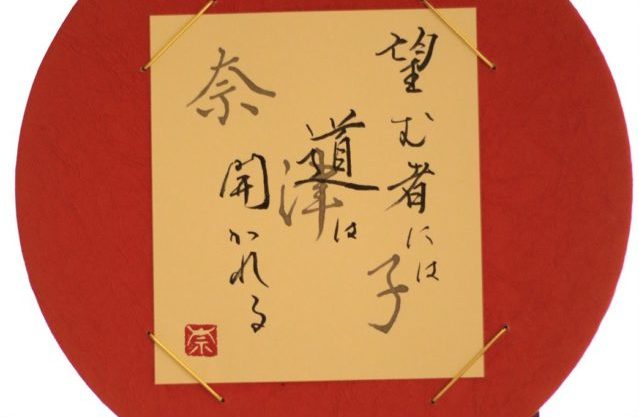 望む者には
道は
開かれる
奈津子
奈